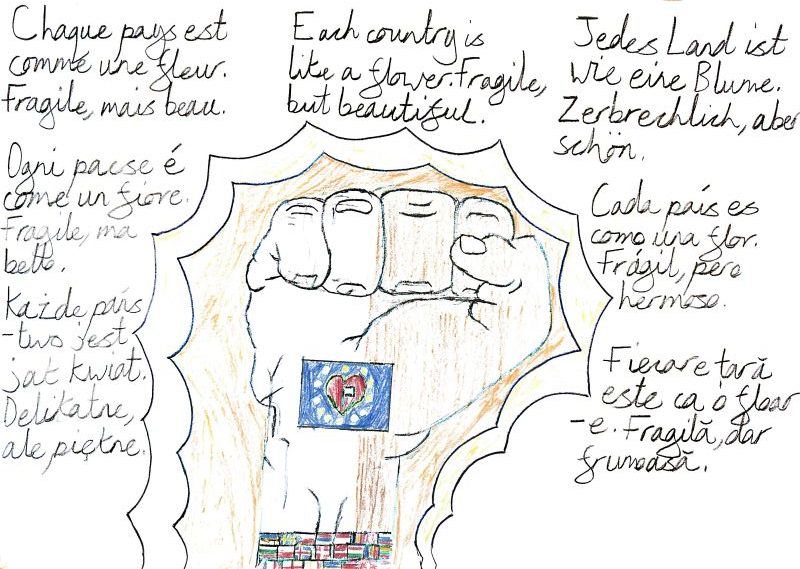 Chaque pays est
comme une fleur.
Fragile, mais beau.
Each country is
like a flower. Fragile,
but beautiful.
Jedes Land ist
wie eine Blume.
Zerbrechlich, aber
schön.
Ogni paese é
come un fiore.
Fragile, ma
bello.
Cada país es
como una flor.
Frágil, pero
hermoso.
Każde pańs
-two jest
jat kwiat.
Delikatne,
ale piętne.
Fiecare tară
este ca o floar
-e. Fragilă, dar
frumoasă.